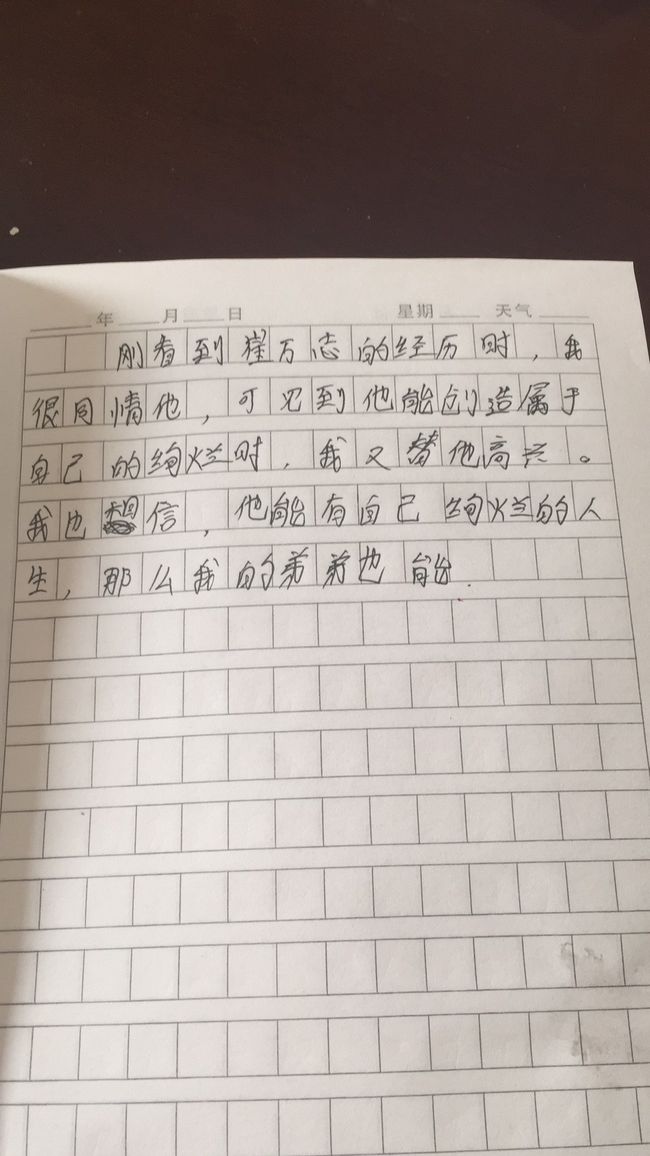 年 月 日 星期 天气
刚看到崔万志的经历时，我
很同情他，可见到他能创造属于
自己的绚烂时，我又替他高兴。
我也相信，他能有自己绚烂的人
生，那么我的弟弟也能.